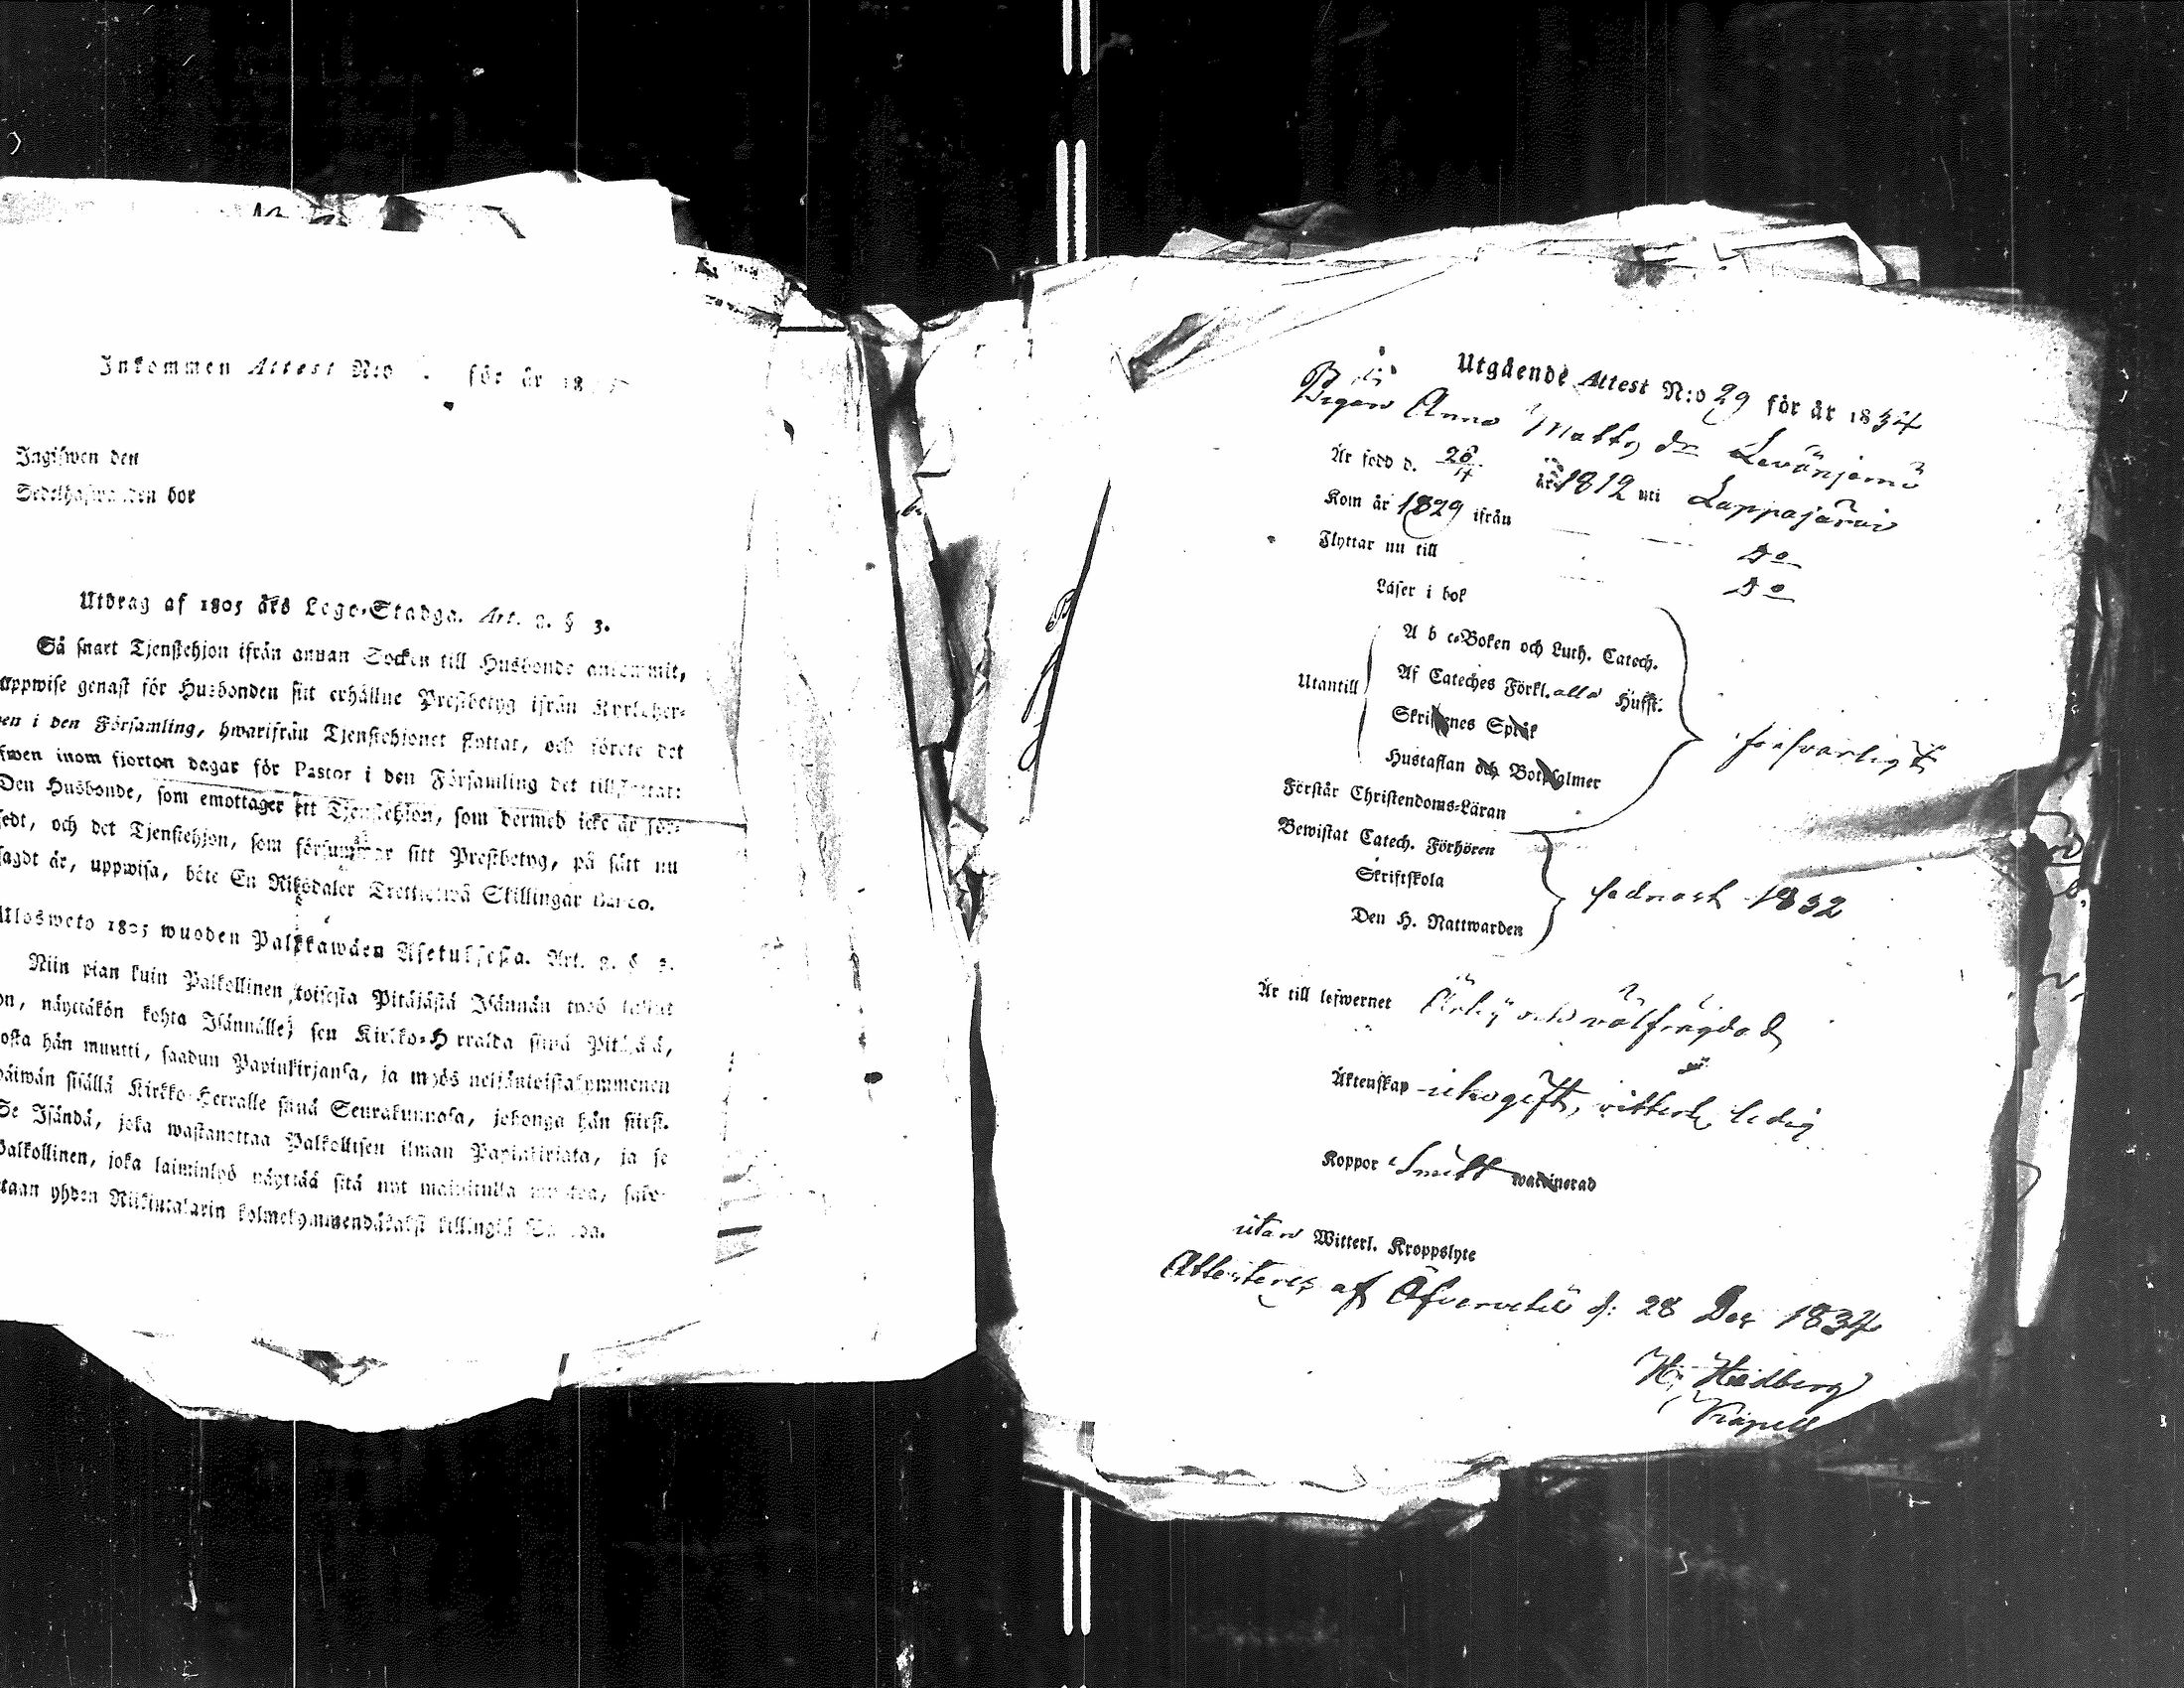 Inkommen Attest N:o för år 18
Ingifwen den
Sedelhafwanden bor
Utdrag af 1805 års Lego-Stadga. Art. 2. § 3.
Så snart Tjenstehjon ifrån annan Socken till Husbonde ankommit,
uppwise genast för Husbonden sitt erhållne Prestbetyg ifrån Kyrkoher-
en i den Församling, hwarifrån Tjenstehjonet flyttat, och förete det
fwen inom fjorton dagar för Pastor i den Församling det tillflyttat:
Den Husbonde, som emottager ett Tjenstehjon, som dermed icke är för-
sedt, och det Tjenstehjon, som försummar sitt Prestbetyg, på sätt nu
sagdt är, uppwisa, böte En Riksdaler Trettiotwå Skillingar Banco.
Ulosweto 1805 wuoden Palkkawäen Asetuksesta. Art. 2. § 3.
Niin pian kuin Palkollinen toisesta Pitäjästä Isännän työö tullut
on, näyttäkön kohta Isännälle, sen Kirkko-Herralda siinä Pitäjäsä,
osta hän muutti, saadun Papinkirjansa, ja myös neljäntoistakymmenen
päiwän sisällä Kirkko-Herralle siinä Seurakunnasa, johonga hän siirsi.
Se Isändä, joka wastanottaa Palkollisen ilman Papinkirjata, ja se
Palkollinen, joka laiminlyö näyttää sitä nyt mainitulla muodon,
etaan yhden Riikintalarin kolmekymmendäkaksi killingiä
Utgående Attest N:o 29 för år 1834
Pigan Anna Matts dr Levänjemi
Är född d. 26/4 år 1812 uti Lappajärvi
Kom år 1829 ifrån Do
Flyttar nu till Do
Läser i bok
A b c-Boken och Luth. Catech.
Utantill
Af Cateches Förkl. alla Husst.
Skriftenes Språk
Hustaflan och Botpsalmer
försvarligt
Förstår Christendoms-Läran
Bewistat Catech. Förhören
Skriftskola
Den H. Nattwarden
sednast 1832
Är till lefwernet Ärlig och välfrägdad
Äktenskap ichogift, vitterl. ledig
Koppor Smitt waccinerad
utan Witterl. Kroppslyte
Attesteres af Öfvervetil d: 28 Dec 1834
H: Hedberg
Kapell